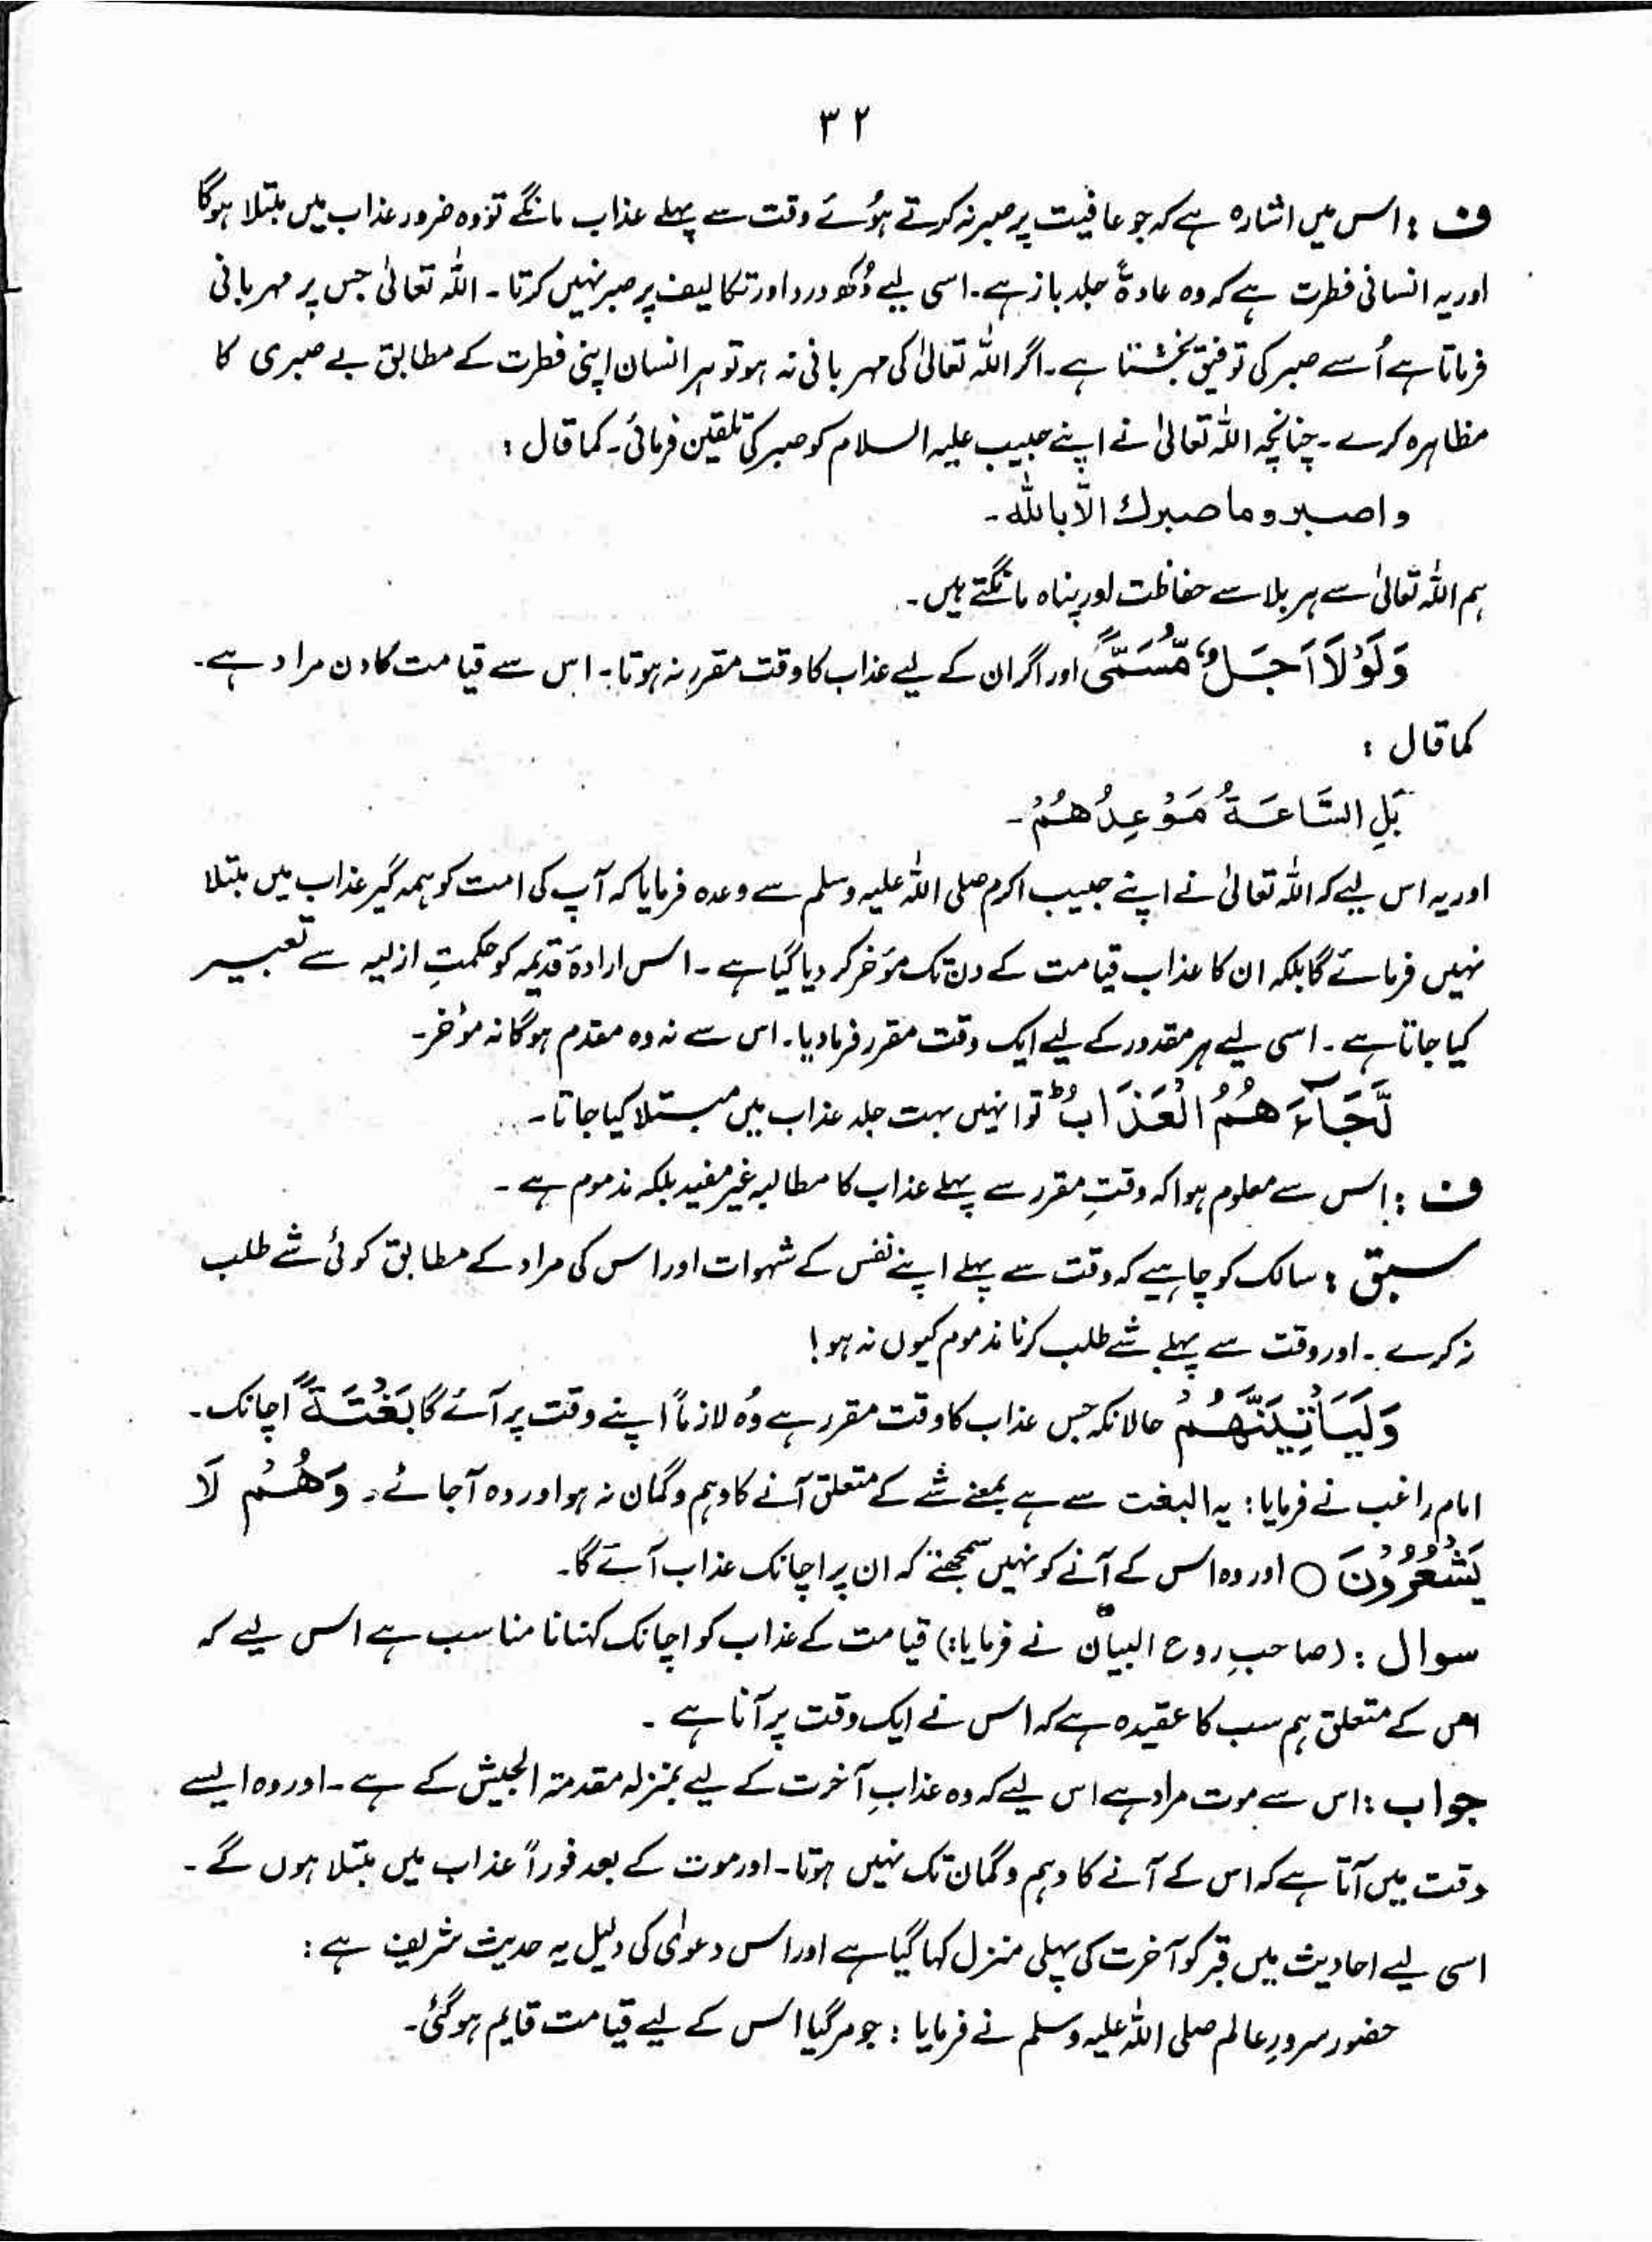 ۳۲
ف : اس میں اشارہ ہے کہ جو عافیت پر صبر نہ کرتے ہوئے وقت سے پہلے عذاب مانگے تو وہ ضرور عذاب میں مبتلا ہوگا
اور یہ انسانی فطرت ہے کہ وہ عادۃً جلد باز ہے۔ اسی لیے دُکھ درد اور تکالیف پر صبر نہیں کرتا۔ اللہ تعالیٰ جس پر مہربانی
فرماتا ہے اُسے صبر کی توفیق بخشتا ہے۔ اگر اللہ تعالیٰ کی مہربانی نہ ہو تو ہر انسان اپنی فطرت کے مطابق بے صبری کا
مظاہرہ کرے۔ چنانچہ اللہ تعالیٰ نے اپنے حبیب علیہ السلام کو صبر کی تلقین فرمائی۔ کما قال :
واصبر وما صبرك الّا بالله۔
ہم اللہ تعالیٰ سے ہر بلا سے حفاظت اور پناہ مانگتے ہیں۔
وَلَوْلَا اَجَلٌ مُّسَمًّى اور اگر ان کے لیے عذاب کا وقت مقرر نہ ہوتا۔ اس سے قیامت کا دن مراد ہے۔
کما قال :
بَلِ السَّاعَةُ مَوْعِدُهُمْ۔
اور یہ اس لیے کہ اللہ تعالیٰ نے اپنے حبیب اکرم صلی اللہ علیہ وسلم سے وعدہ فرمایا کہ آپ کی امت کو ہمہ گیر عذاب میں مبتلا
نہیں فرمائے گا بلکہ ان کا عذاب قیامت کے دن تک مؤخر کر دیا گیا ہے۔ اس ارادۂ قدیمہ کو حکمتِ ازلیہ سے تعبیر
کیا جاتا ہے۔ اسی لیے ہر مقدور کے لیے ایک وقت مقرر فرما دیا۔ اس سے نہ وہ مقدم ہوگا نہ مؤخر۔
لَّجَآءَهُمُ الْعَذَابُ ؕ تو انہیں بہت جلد عذاب میں مبتلا کیا جاتا۔
ف : اِس سے معلوم ہوا کہ وقتِ مقرر سے پہلے عذاب کا مطالبہ غیر مفید بلکہ مذموم ہے۔
سبق : سالک کو چاہیے کہ وقت سے پہلے اپنے نفس کے شہوات اور اس کی مراد کے مطابق کوئی شے طلب
نہ کرے۔ اور وقت سے پہلے شے طلب کرنا مذموم کیوں نہ ہو!
وَلَيَاْتِيَنَّهُمْ حالانکہ جس عذاب کا وقت مقرر ہے وُہ لازماً اپنے وقت پر آئے گا بَغْتَةً اچانک۔
امام راغب نے فرمایا : یہ البغت سے ہے بمعنے شے کے متعلق آنے کا وہم و گمان نہ ہو اور وہ آجائے۔ وَهُمْ لَا
يَشْعُرُوْنَ ○ اور وہ اس کے آنے کو نہیں سمجھتے کہ ان پر اچانک عذاب آئے گا۔
سوال : (صاحبِ روح البیان نے فرمایا:) قیامت کے عذاب کو اچانک کہنا نامناسب ہے اس لیے کہ
اس کے متعلق ہم سب کا عقیدہ ہے کہ اس نے ایک وقت پر آنا ہے۔
جواب : اس سے موت مراد ہے اس لیے کہ وہ عذابِ آخرت کے لیے بمنزلہ مقدمۃ الجیش کے ہے۔ اور وہ ایسے
وقت میں آتا ہے کہ اس کے آنے کا وہم و گمان تک نہیں ہوتا۔ اور موت کے بعد فوراً عذاب میں مبتلا ہوں گے۔
اسی لیے احادیث میں قبر کو آخرت کی پہلی منزل کہا گیا ہے اور اس دعوٰی کی دلیل یہ حدیث شریف ہے :
حضور سرورِ عالم صلی اللہ علیہ وسلم نے فرمایا : جو مر گیا اس کے لیے قیامت قایم ہوگئی۔